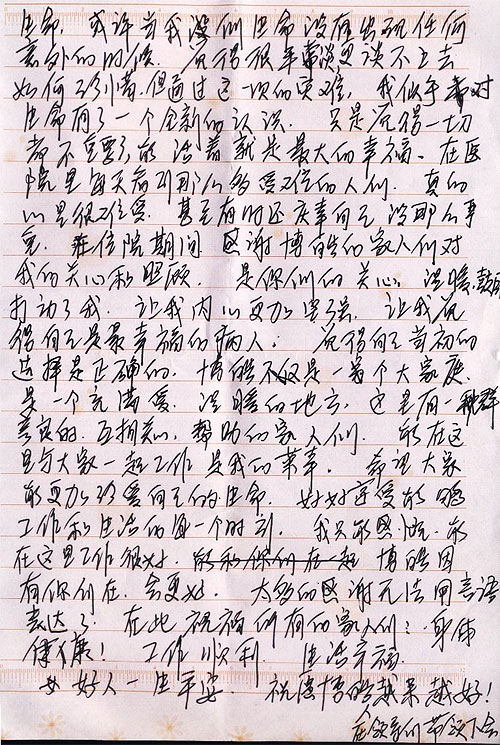 生命，或许当我没们生命没有出现任何
意外的时候，觉得很平常更谈不上去
如何珍惜，但通过这一次的灾难，我似乎对
生命有了一个全新的认识，只是觉得一切
都不重要，能活着就是最大的幸福。在医
院里每天看到那么多受难的人们，真的
心里很难受。甚至有时还庆幸自己没那么事
在住院期间 感谢博皓的家人们对
我的关心和照顾，是你们的关心，温暖，鼓励
打动了我，让我内心更加坚强，让我觉
得自己是最幸福的病人，觉得自己当初的
选择是正确的，博皓不仅是一个大家庭
是一个充满爱，温暖的地方，这里有一群
善良的，互相关心，帮助的家人们，能在这
里与大家一起工作是我的荣幸，希望大家
能更加珍爱自己的生命，好好享受
工作和生活的每一个时刻，我只能感恩，能
在这里工作很好，能和你们在一起 博皓因
有你们在，会更好，太多的感谢无法用言语
表达了，在此祝福所有的家人们：身体
健康！工作顺利，生活幸福
好人一生平安，祝愿博皓越来越好！
在领导们带领下会